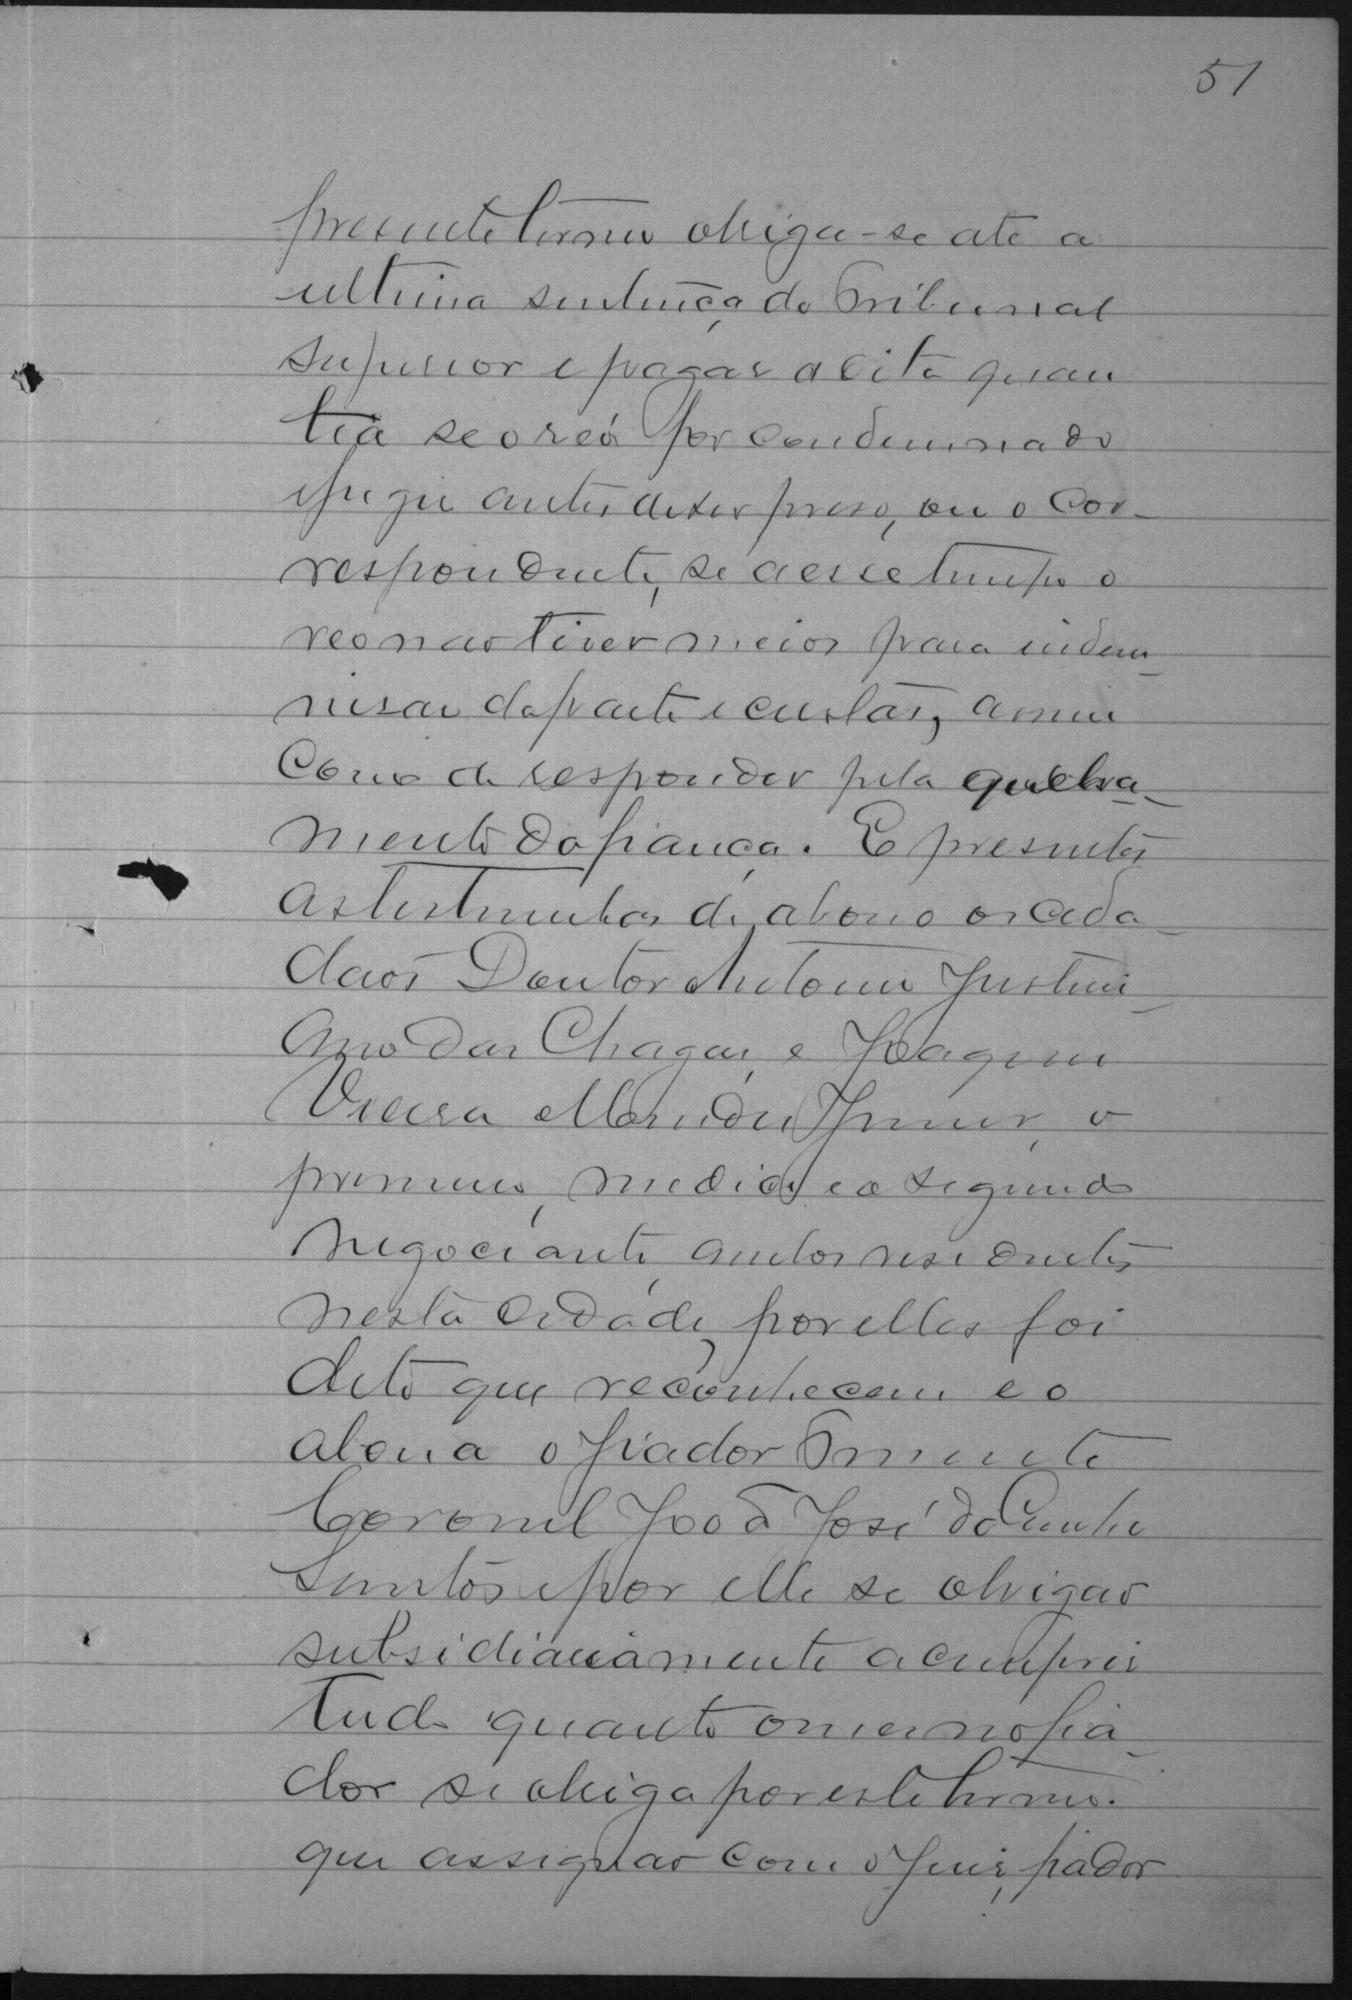 51
presente termo obriga-se até a
ultima sentença do Tribunal
Superior e pagar a dita quan
tia se o reó for condemnado
e fugir antes de ser preso, ou o cor-
respondente, se a esse tempo o
reo nao tiver meios para indem-
nisar da parte e custas, assim
como de responder pela quebra-
mento da fiança. E presentes
as testemunhas de abono os cida-
daõs Doutor Antonio Justini-
ano das Chagas, e Joaquim
Vieira Mendes Junior, o
primeiro, medico, e o segundo
negociante, ambos residentes
nesta cidade, por elles foi
dito que reconhecem e o
abona o fiador Tenente
Coronel João José da Cunha
Santos e por elle se obrigaõ
subsidiariamente a cumprir
tudo quanto o mesmo fia-
dor se obriga por este termo.
que assignaõ com o Juiz, fiador